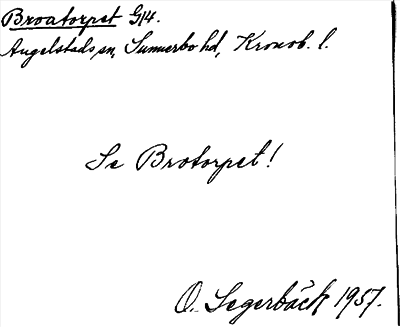 Broatorpet G14.
Angelstads sn, Sunnerbo hd, Kronob. l.
Se Brotorpet!
O. Segerbäck 1957.